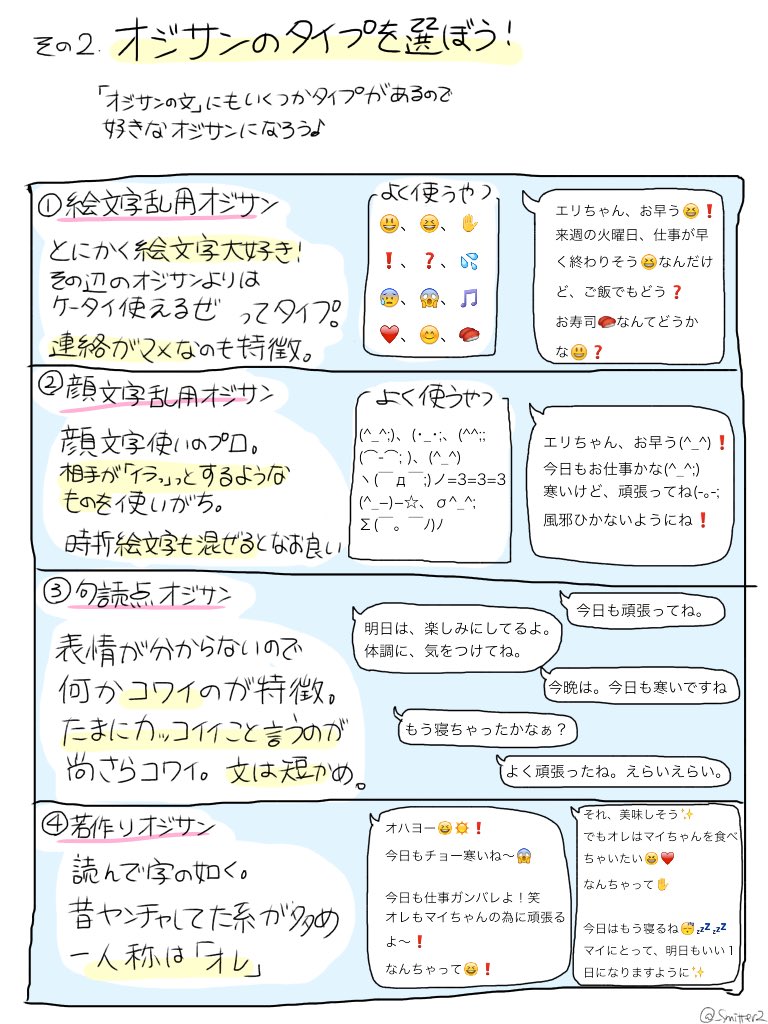 その2. オジサンのタイプを選ぼう!
「オジサンの文」にもいくつかタイプがあるので
好きなオジサンになろう♪
①絵文字乱用オジサン
とにかく絵文字大好き!
その辺のオジサンよりは
ケータイ使えるぜ ってタイプ。
連絡がマメなのも特徴。
よく使うやつ
😃、😆、✋
❗、❓、💦
😰、😱、🎵
❤️、😊、🍣
エリちゃん、お早う😆❗
来週の火曜日、仕事が早
く終わりそう😆なんだけ
ど、ご飯でもどう❓
お寿司🍣なんてどうか
な😃❓
②顔文字乱用オジサン
顔文字使いのプロ。
相手が「イラッ」っとするような
ものを使いがち。
時折絵文字も混ぜるとなお良い
よく使うやつ
(^_^;)、(・_・;、(^^;;
(⌒-⌒; )、(^_^)
ヽ(￣д￣;)ノ=3=3=3
(^_−)−☆、σ^_^;
Σ(￣。￣ﾉ)ﾉ
エリちゃん、お早う(^_^)❗
今日もお仕事かな(^_^;)
寒いけど、頑張ってね(-｡-;
風邪ひかないようにね❗
③句読点オジサン
表情が分からないので
何かコワイのが特徴。
たまにカッコイイこと言うのが
尚さらコワイ。文は短かめ。
今日も頑張ってね。
明日は、楽しみにしてるよ。
体調に、気をつけてね。
今晩は。今日も寒いですね
もう寝ちゃったかなぁ？
よく頑張ったね。えらいえらい。
④若作りオジサン
読んで字の如く。
昔ヤンチャしてた系が多め
一人称は「オレ」
オハヨー😆☀️❗
今日もチョー寒いね〜😱
今日も仕事ガンバレよ！笑
オレもマイちゃんの為に頑張る
よ〜❗
なんちゃって😆❗
それ、美味しそう✨
でもオレはマイちゃんを食べ
ちゃいたい😆❤️
なんちゃって✋
今日はもう寝るね😴💤💤
マイにとって、明日もいい１
日になりますように✨
@_Smitter2